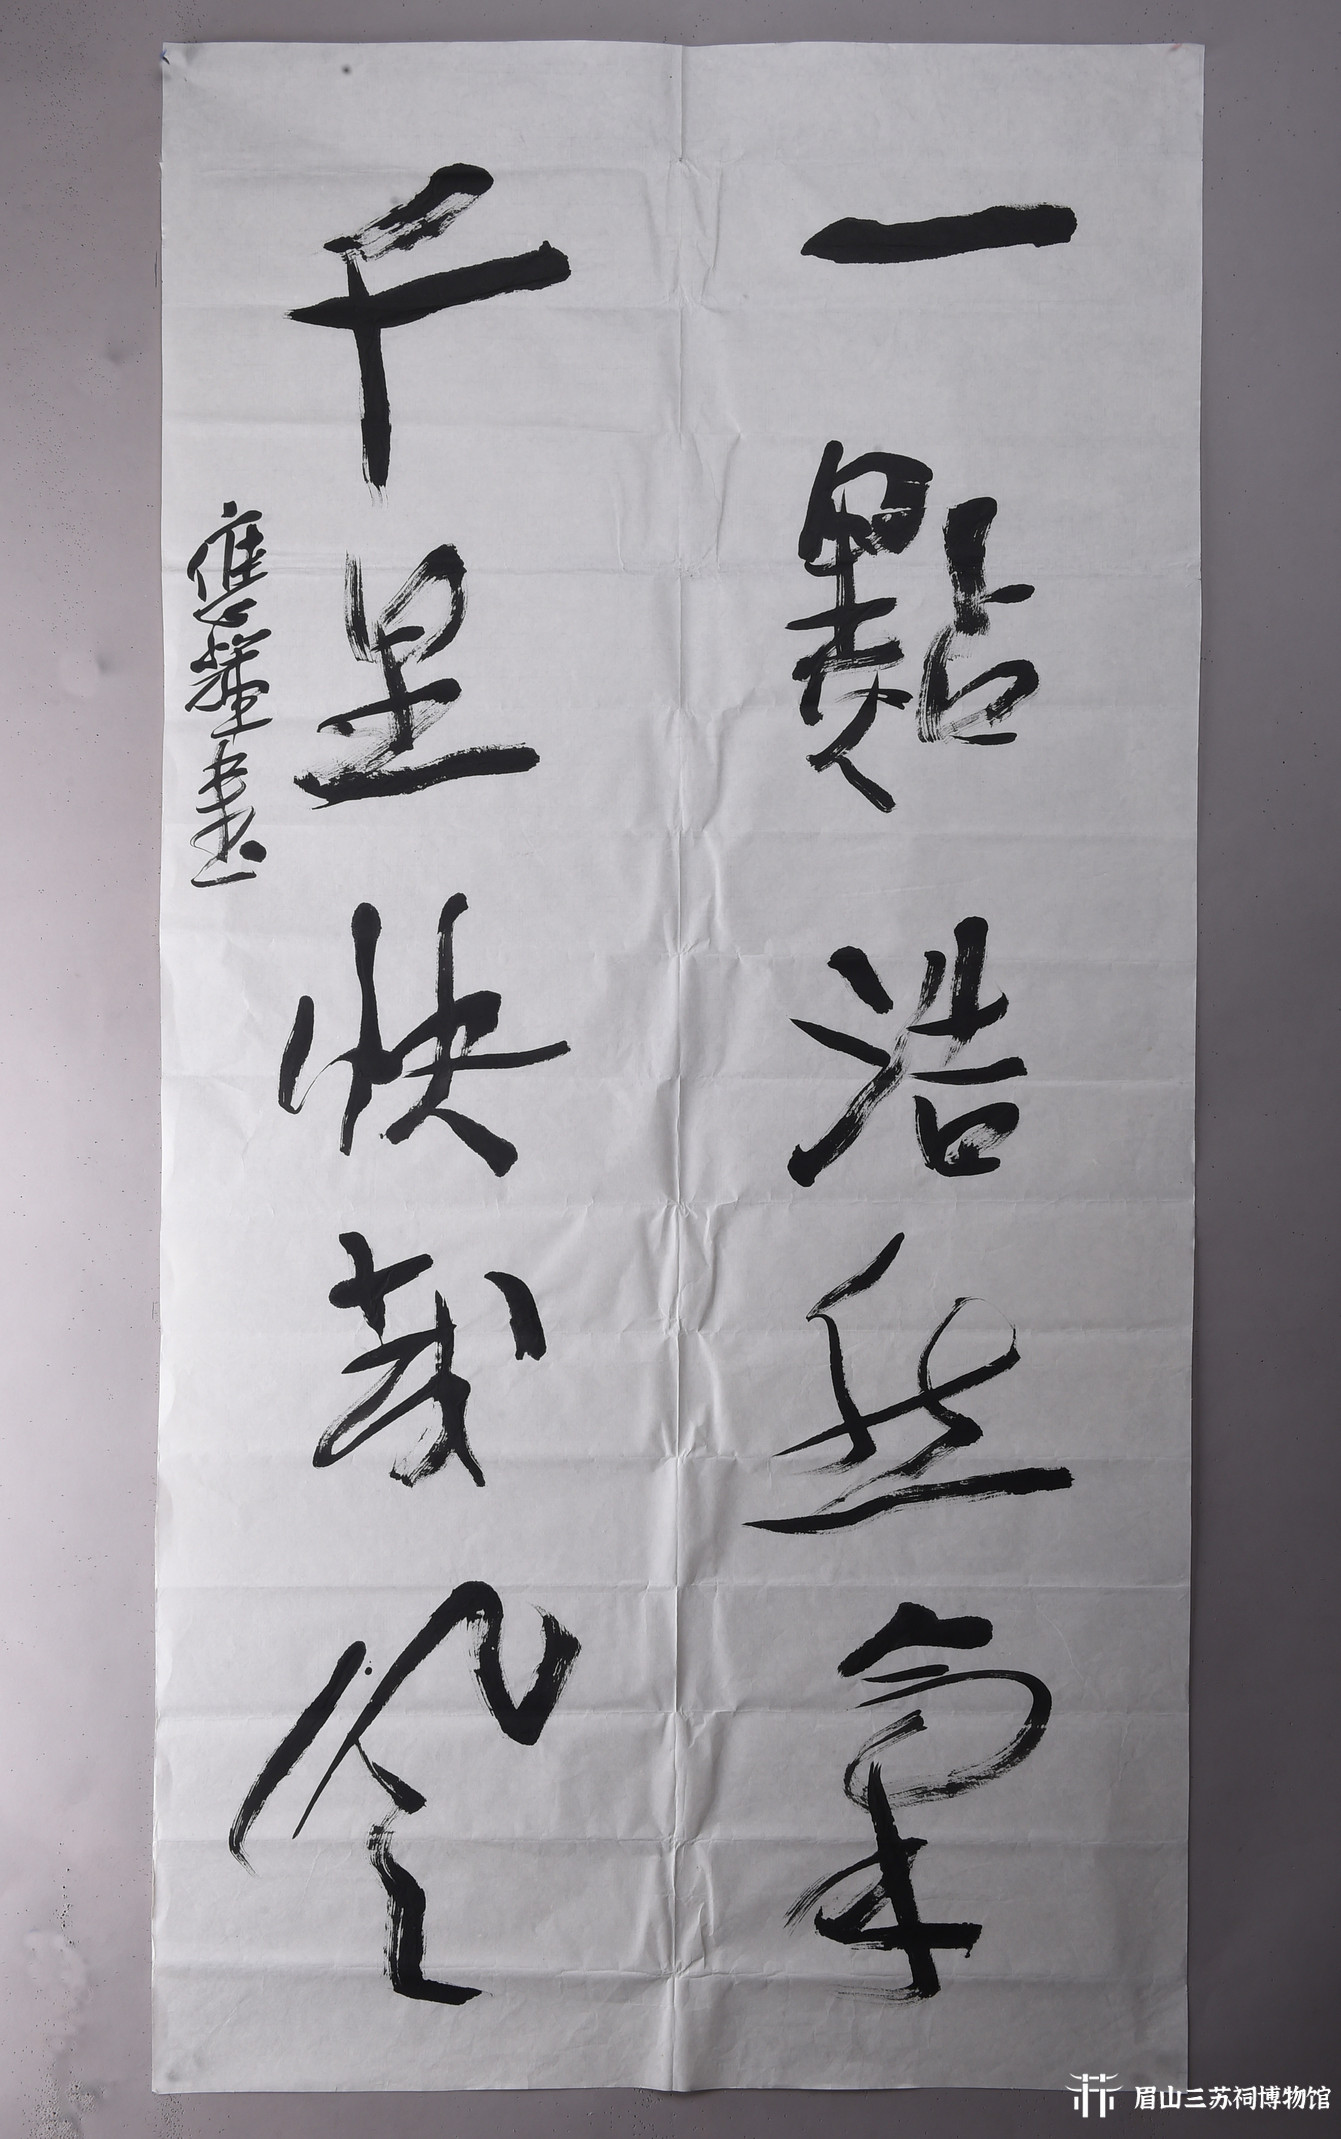 一點浩然氣
千里快哉風
應華書
眉山三苏祠博物馆